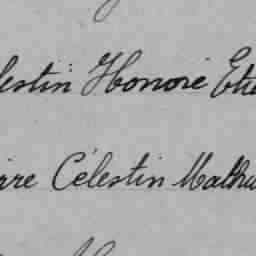 lestin Honoré Etie
ire Célestin Mathu